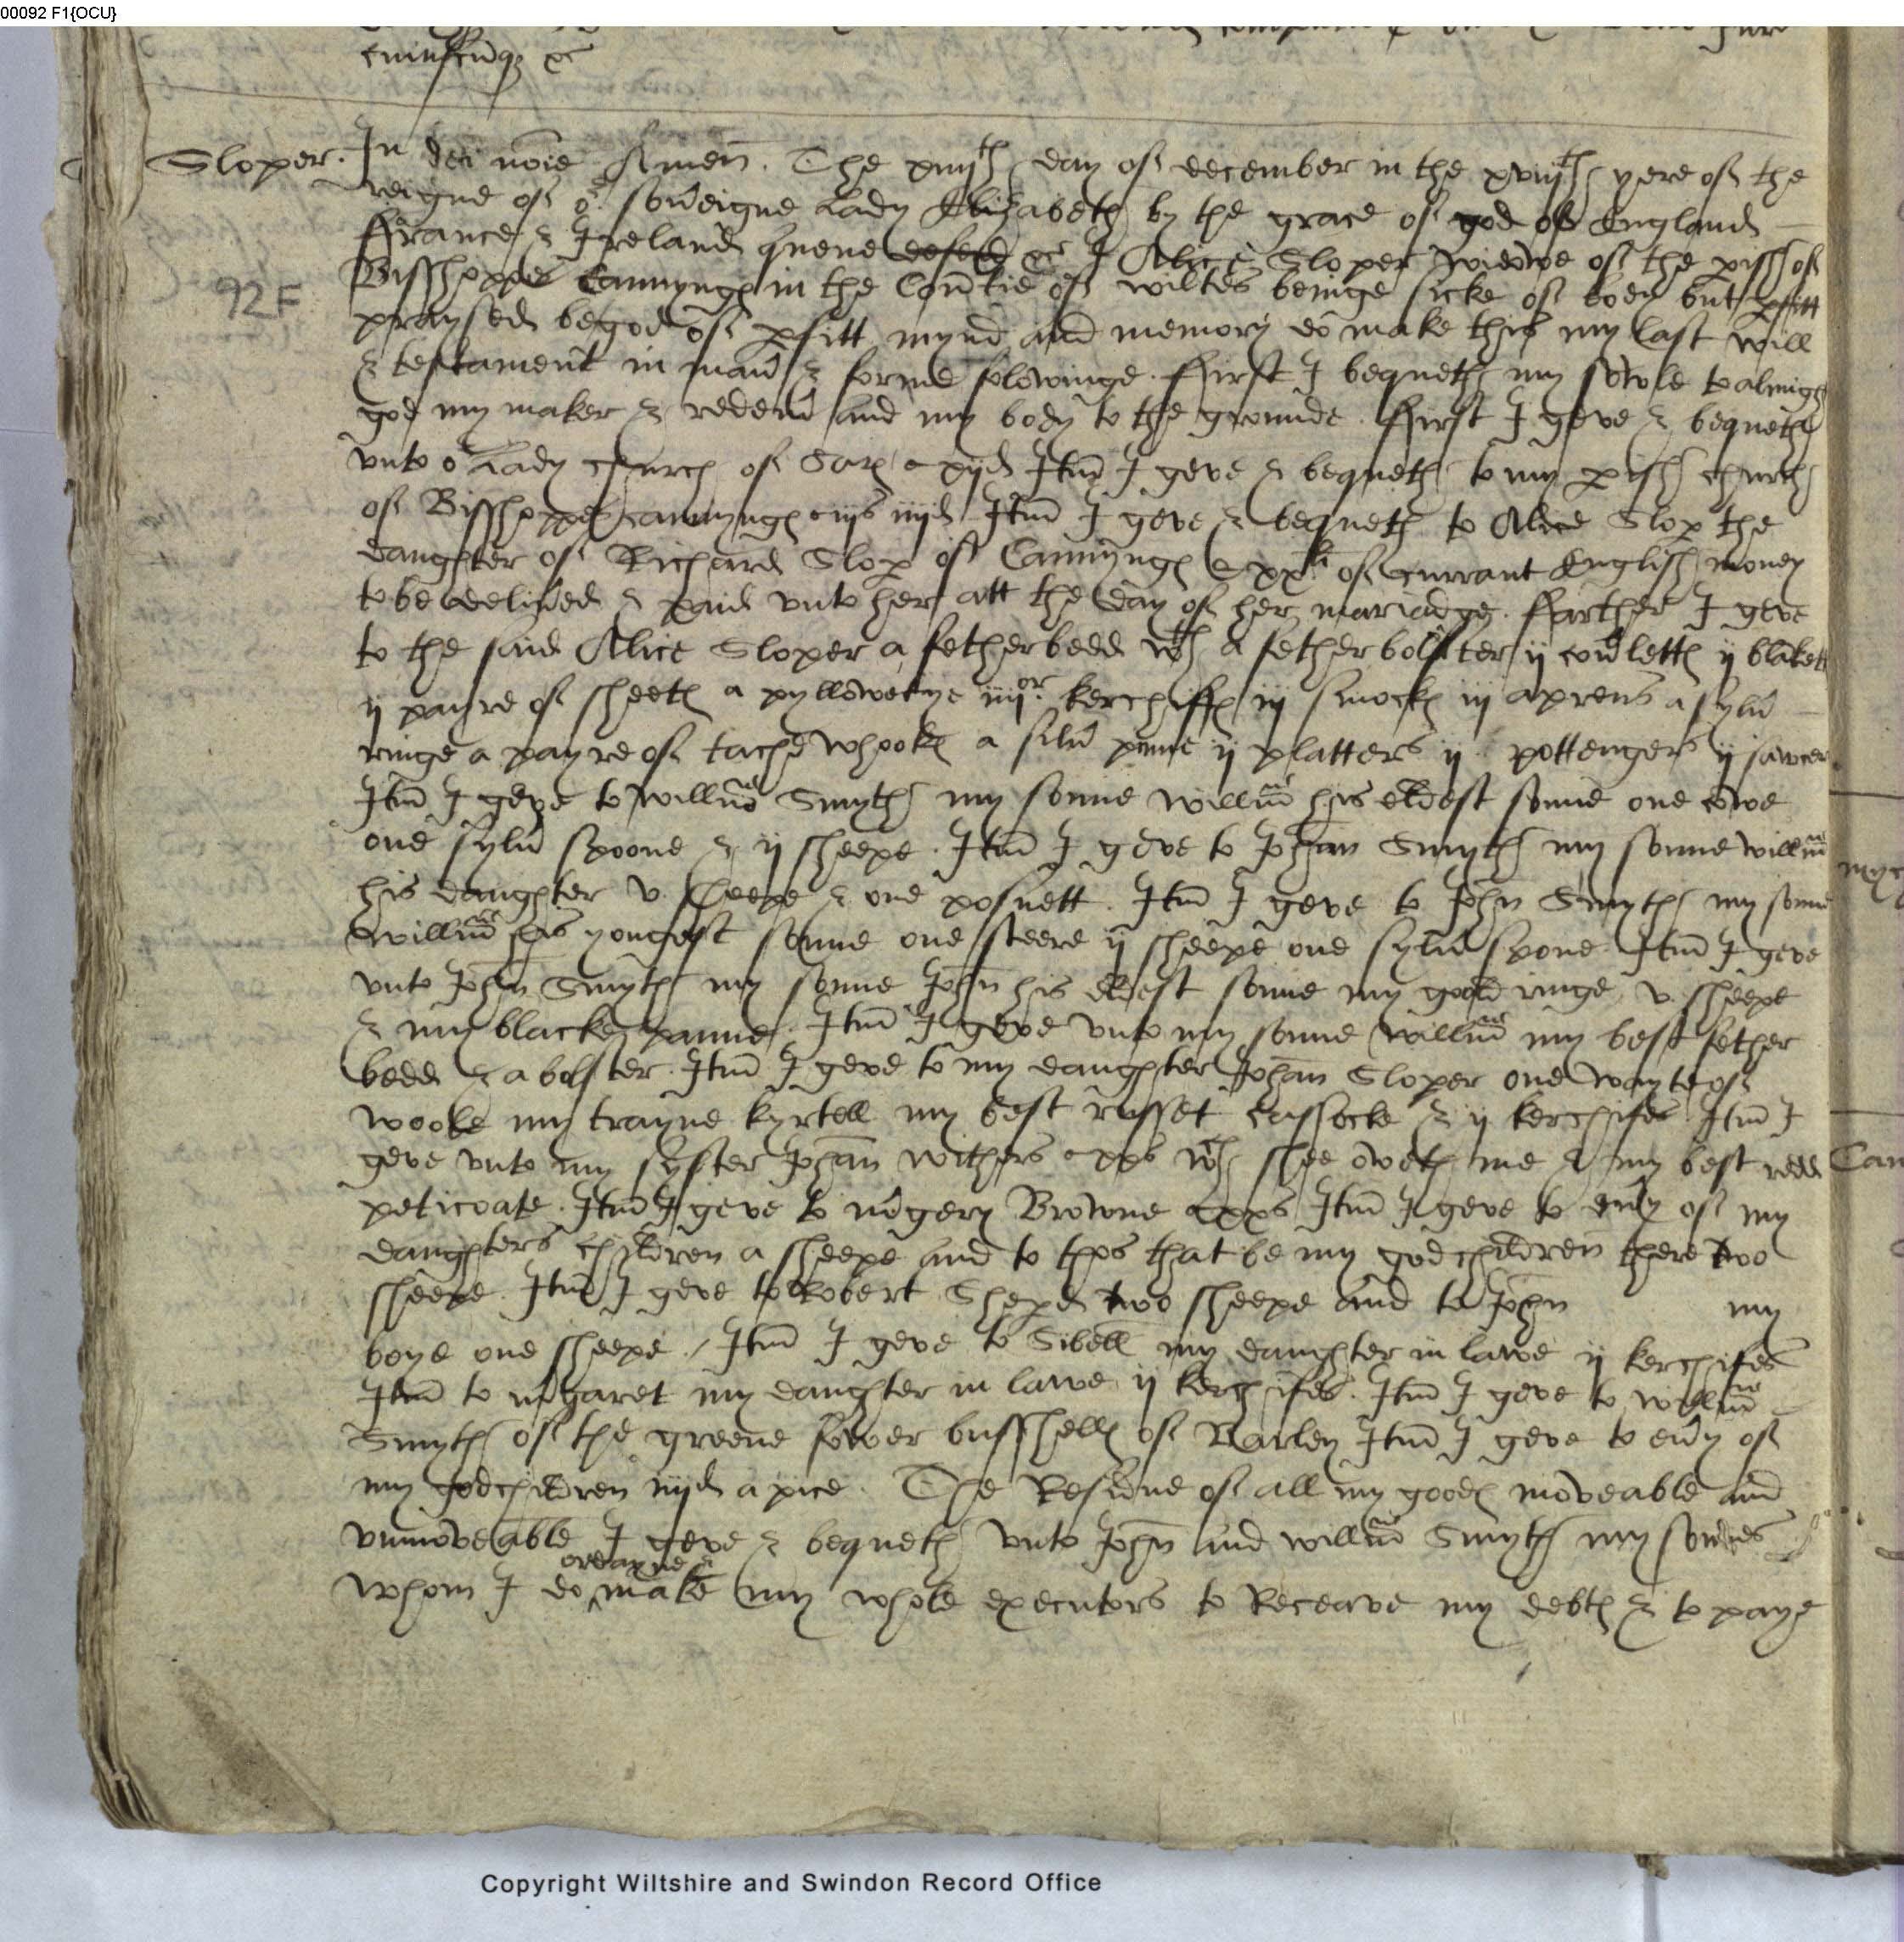 00092 F1{OCU}
cuiuscunq &c
Sloper.
92F
In dei noie Amen. The xiiijth day of december in the xviijth yere of the
reigne of or soveigne Lady Elizabeth by the grace of god of England
ffrance & Ireland quene defend &c I Alice Sloper widowe of the pish of
Bisshoppes Cannyngs in the Countie of wiltes beinge sicke of body but pfitt
praysed be god of pfitt mynd and memory do make this my last will
& testament in man & forme folowinge. ffirst I bequeth my sowle to almigh
god my maker & redem and my body to the grounde. ffirst I geve & bequeth
unto or Lady church of Sar xijd Itm I geve & bequeth to my pish church
of Bisshoppes cannyngs iijs iiijd Itm I geve & bequeth to Alice Slop the
daughter of Richard Slop of Cannyngs xxli of currant English money
to be delived & paid unto her att the day of her mariadge. ffarther I geve
to the said Alice Sloper a fetherbedd wth a fetherbolster ij covletts ij blakett
ij payre of sheets a pyllowetye iiijor kerchiffs iij smocks iij aprens a sylv
ringe a payre of tache whooks a silv pinne ij platters ij pottengers ij sawcer
Itm I geve to willm Smyth my sonne willm his eldest sonne one cowe
one sylv spoone & ij sheepe. Itm I geve to Johan Smyth my sonne willm
his daughter v. sheepe & one posnett. Itm I geve to John Smyth my sonne
willm his yongest sonne one steere ij sheepe one sylv spone Itm I geve
unto John Smyth my sonne John his eldest sonne my goold ringe v. sheepe
& my blacke panne. Itm I geve unto my sonne willm my best fether
bedd & a bolster. Itm I geve to my daughter Johan Sloper one wayte of
woole my trayne kyrtell my best russet cassocke & ij kerchifes Itm I
geve unto my syster Johan withers xxs wch shee oweth me & my best redd
peticoate. Itm I geve to mgery Browne xxs Itm I geve to evy of my
daughters children a sheepe and to thos that be my godchildren there two
sheepe. Itm I geve to Robert Sheperd two sheepe and to John my
boye one sheepe. Itm I geve to Sibell my daughter in lawe ij kerchifes
Itm to mgaret my daughter in lawe ij kerchifes. Itm I geve to willm
Smyth of the greene fower busshells of Barley Itm I geve to evy of
my godchildren iiijd a pice. The Residue of all my goods moveable and
unmoveable I geve & bequeth unto John and willm Smyth my sonnes
whom I do ordayne & make my whole executors to Receave my debts & to paye
Can
Copyright Wiltshire and Swindon Record Office